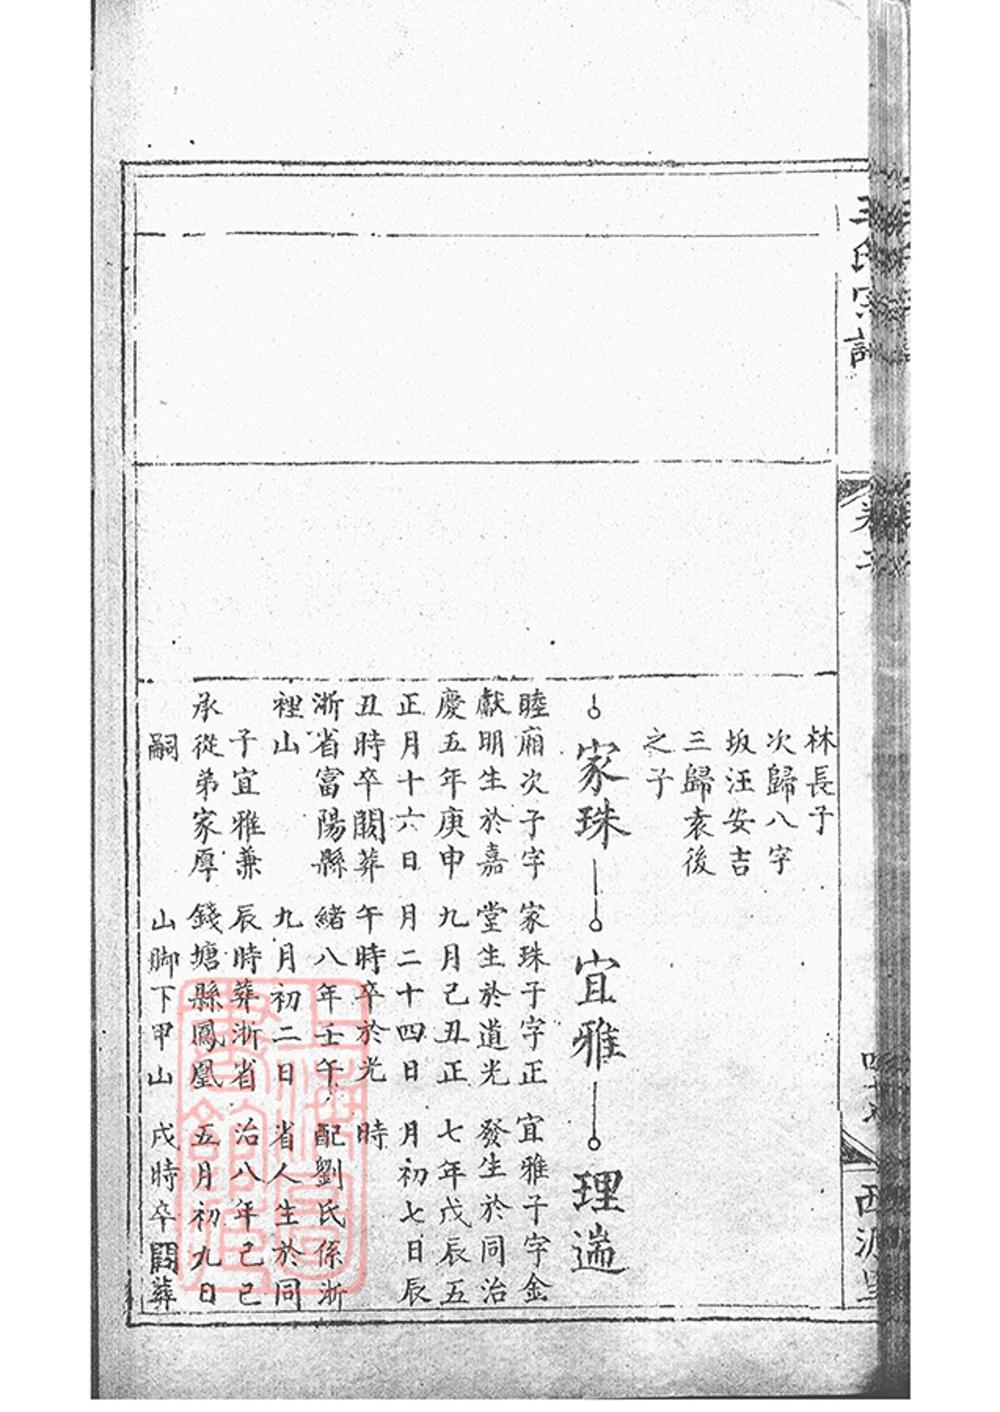 王氏宗譜
林長子
次歸八字
坂汪安吉
三歸袁後
之子
家珠
睦廂次子字
獻明生於嘉
慶五年庚申
正月十六日
丑時卒闕葬
浙省富陽縣
裡山
子宜雅兼
承從弟家厚
嗣
宜雅
家珠子字正
堂生於道光
九月己丑正
月二十四日
午時卒於光
緒八年壬午
九月初二日
辰時葬浙省
錢塘縣鳳凰
山脚下甲山
理遄
宜雅子字金
發生於同治
七年戊辰五
月初七日辰
時
配劉氏係浙
省人生於同
治八年己巳
五月初九日
戌時卒闕葬
上海圖
書館藏